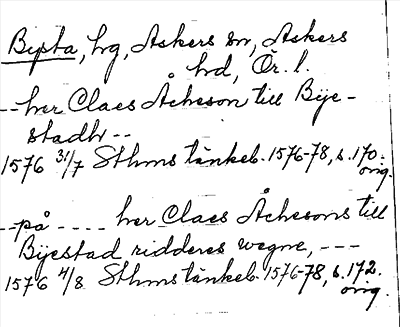 Bysta, hg, Askers sn, Askers
hd, Ör. l.
-- her Claes Åcheson till Bÿe-
stadh --
1576 31/7 Sthms tänkeb. 1576-78, s. 170.
orig.
-- på ---- her Claes Åchesons till
Bÿestad ridderes wegne, ---
1576 4/8 Sthms tänkeb. 1576-78, s. 172.
orig.